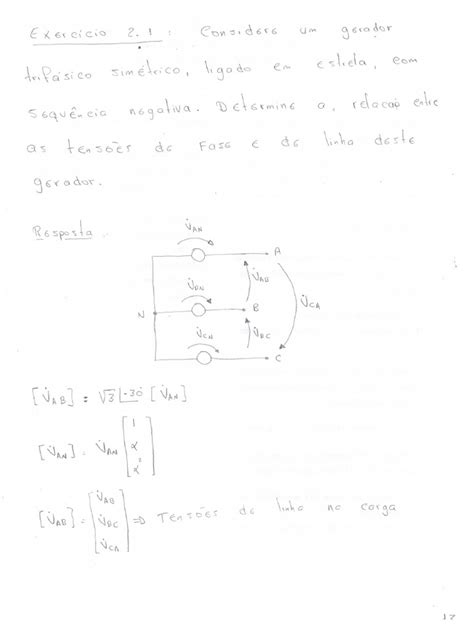 Exercício 2.1 : Considere um gerador
trifásico simétrico, ligado em estrela, com
sequência negativa. Determine a, relação entre
as tensões de Fase e de linha deste
gerador.
Resposta.
V̇AN
A
V̇AB
V̇BN
N
B
V̇CA
V̇CN
V̇BC
C
[V̇AB] = √3 ∟-30° [V̇AN]
[V̇AN] = V̇AN [1
α
α²]
[V̇AB] = [V̇AB
V̇BC
V̇CA] ⇒ Tensões de linha na carga
17